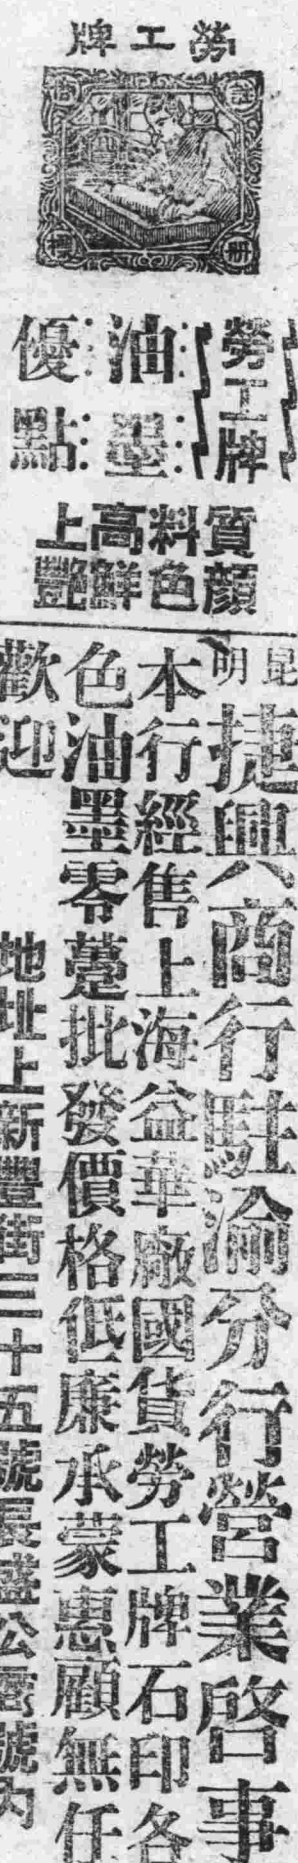 勞工牌
註冊商標
勞工牌
油墨
優點
質料高上
顏色鮮艷
昆明
捷興商行駐渝分行營業啓事
本行經售上海益華廠國貨勞工牌石印各
色油墨零躉批發價格低廉承蒙惠顧無任
歡迎
地址上新豐街三十五號長盛公號內